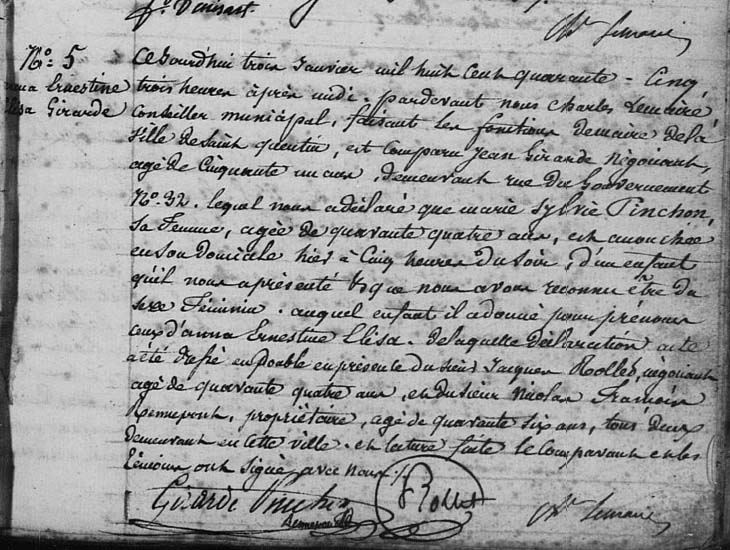 Ch. Lemaire
No. 5
Ernestine
Elisa Girarde
Cejourd'hui trois Janvier mil huit cent quarante-Cinq,
trois heures après midi. pardevant nous Charles Lemaire
Conseiller municipal, faisant les fonctions de maire de la
Ville de Saint quentin, est Comparu Jean Girarde Négociant,
agé de Cinquante un ans, demeurant rue du Gouvernement
No. 32. lequel nous a déclaré que marie Sylvie Pinchon,
Sa Femme, agée de quarante quatre ans, est accouchée
en son domicile hier à Cinq heures du Soir, d'un enfant
qu'il nous a présenté & que nous avons reconnu être du
sexe Féminin. auquel enfant il a donné pour prénoms
ceux d'anna Ernestine Elisa. de laquelle déclaration acte
a été dressé en double en présence du sieur Jacques Rollet, négociant
agé de quarante quatre ans, et du sieur Nicolas François
Rennepont, propriétaire, agé de quarante six ans, tous deux
demeurant en cette ville. et lecture faite le Comparant et les
témoins ont signé avec nous.
Girarde Pinchon
Rollet
Ch. Lemaire